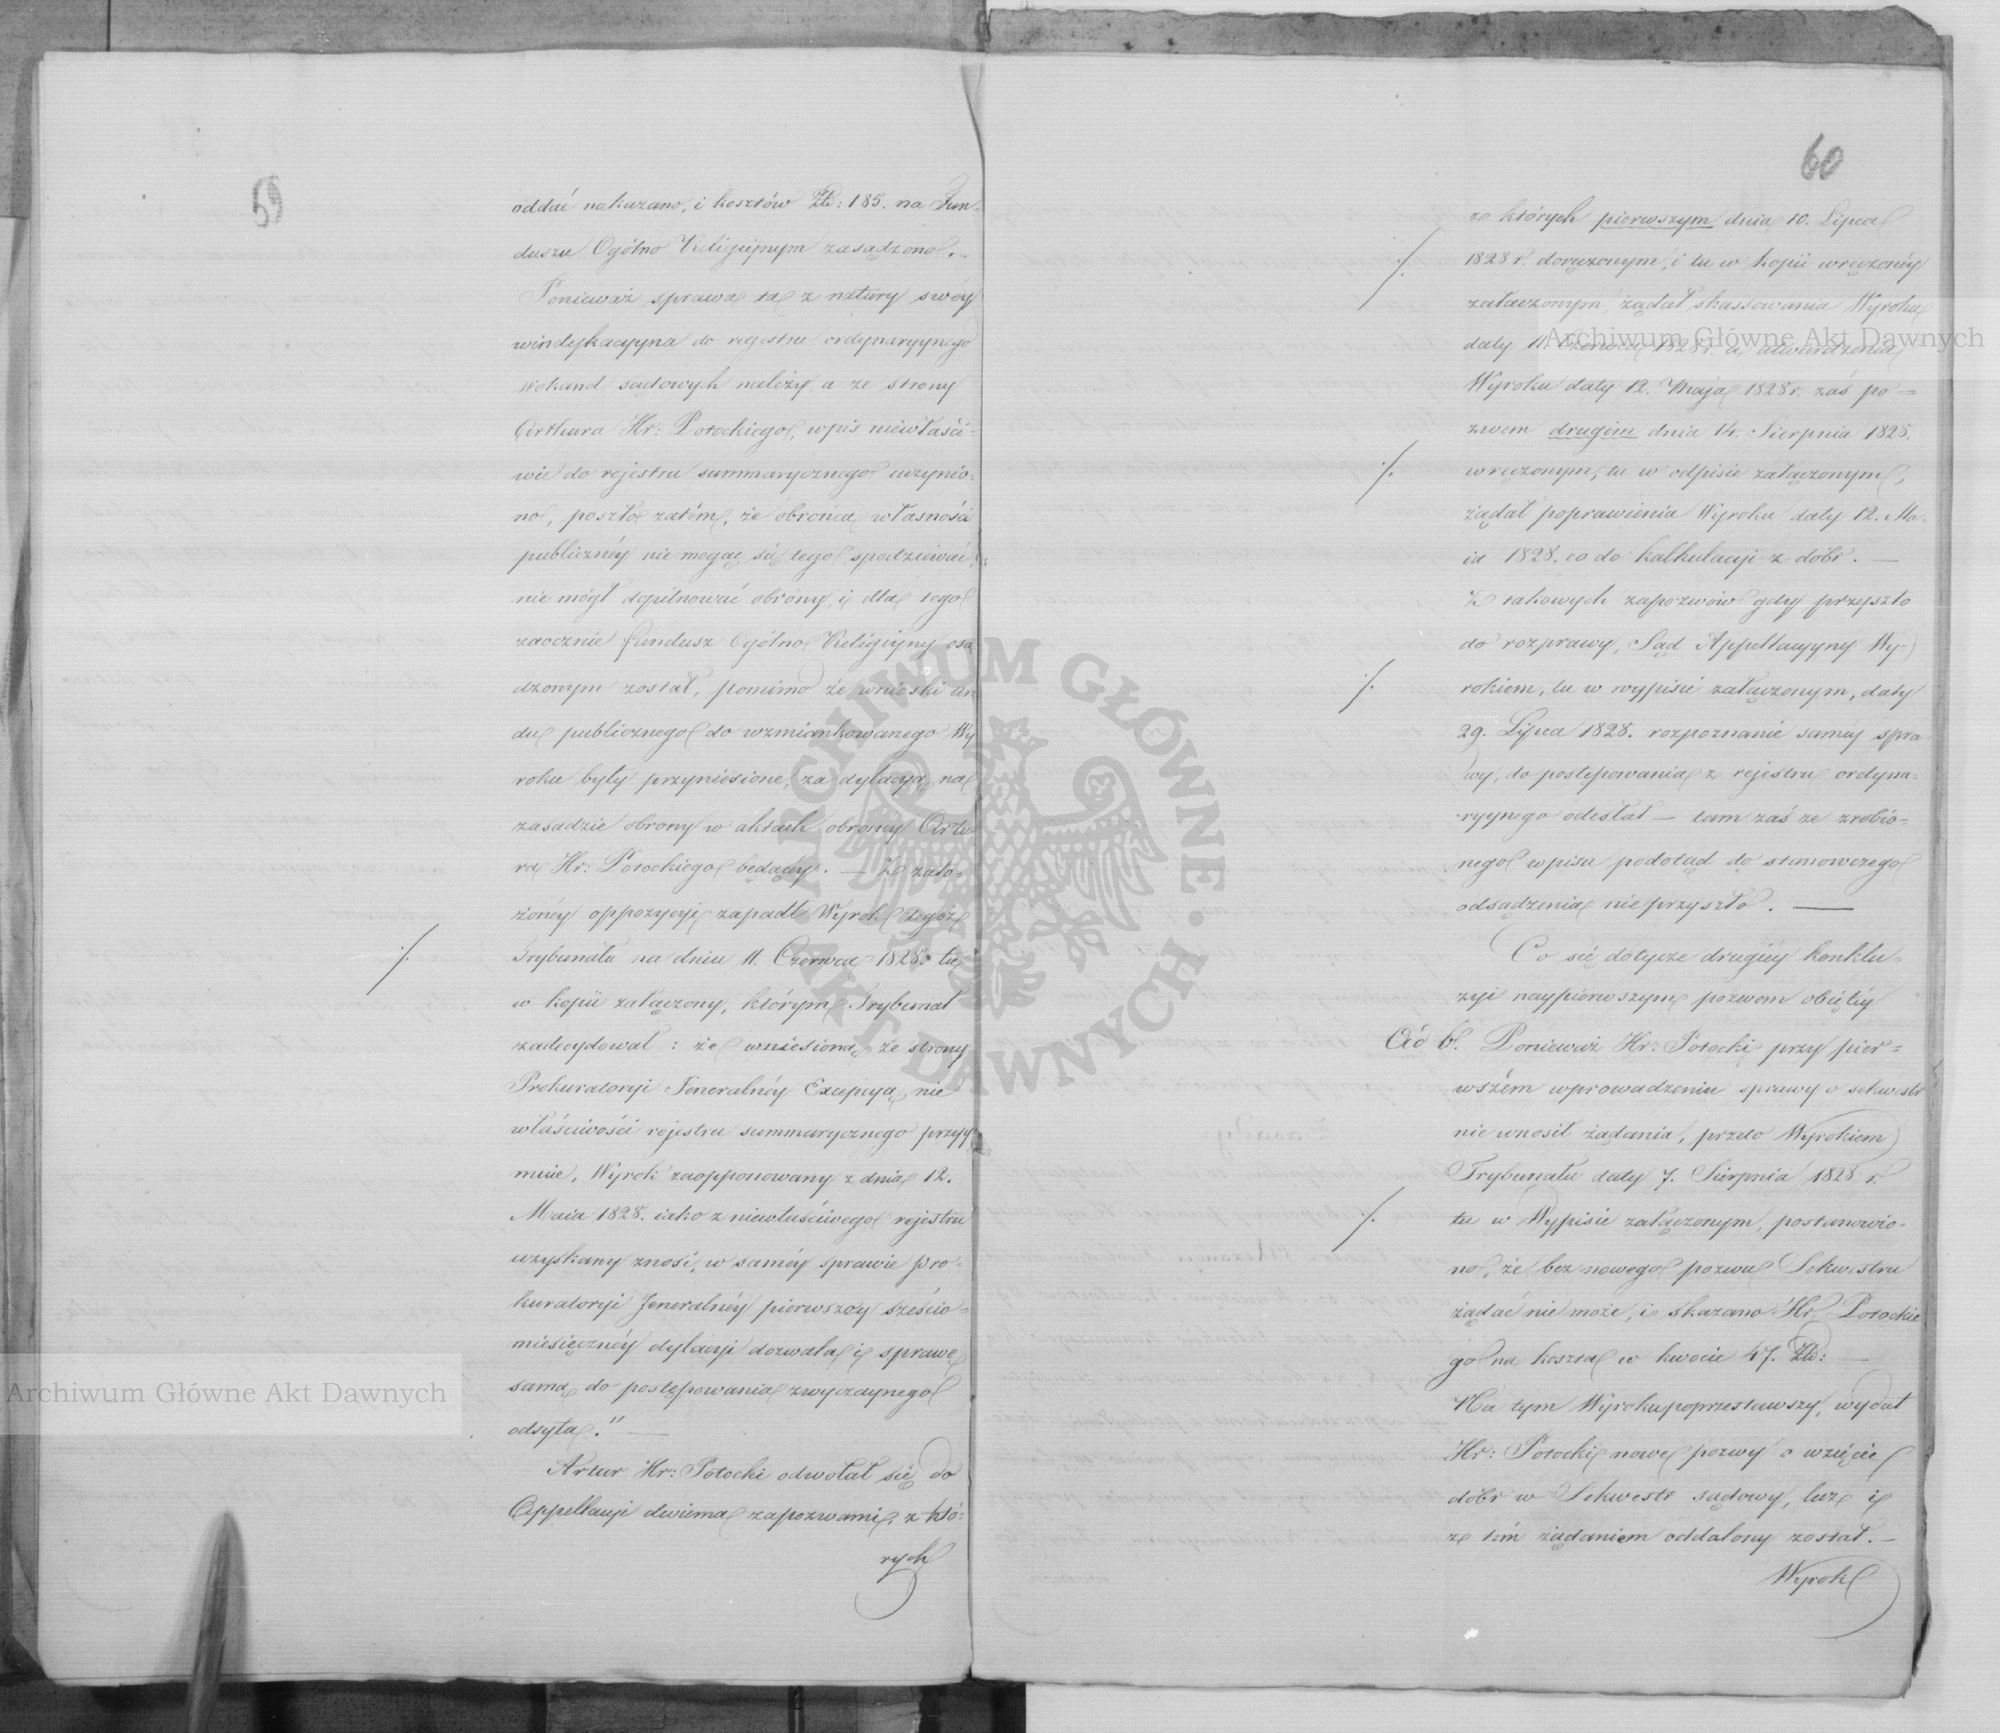 59
oddać nakazano, i kosztów Złt: 185. na Fun-
duszu Ogólno Religijnym zasądzono.
Ponieważ sprawa ta z natury swéy
windykacyyna do regestru ordynaryynego
wokand sądowych należy, a ze strony
Arthura Hr: Potockiego, wpis niewłaści-
wie do rejestru summarycznego uczynio-
no, poszło zatém, że obrońca własności
publicznéy nie mogąc się tego spodziewać,
nie mógł dopilnować obrony, i dla tego
zaocznie fundusz Ogólno Religijny osą
dzonym został, pomimo że wnioski
du publicznego do wzmiankowanego Wy
roku były przyniesione, za dylacyą na
zasadzie obrony w aktach obrony Artu
ra Hr: Potockiego będącey. — Z zało-
żonéy oppozycyi zapadł Wyrok tegoż
./. Trybunału na dniu 11. Czerwca 1828. tu
w kopii załączony, którym Trybunał
zadecydował: że wniesioną ze strony
Prokuratoryi Jeneralnéy Excepcyą nie
właściwości rejestru summarycznego przyy
muie, Wyrok zaopponowany z dnia 12.
Maia 1828. iako z niewłaściwego rejestru
uzyskany znosi, w saméy sprawie Pro-
kuratoryi Jeneralnéy pierwszey sześcio-
miesięcznéy dylacyi dozwala i sprawę
samą do postępowania zwyczaynego
odsyła." —
Artur Hr: Potocki odwołał się do
Appellacyi dwiema zapozwami, z któ-
rych
60
z których pierwszym dnia 10. Lipca
./. 1828 r. doręczonym, i tu w kopii wręczonéy
załączonym, żądał skassowania Wyroku
daty 11. Czerwca 1828 r. a utwierdzenia
Wyroku daty 12. Maja 1828 r. zaś po-
zwem drugim dnia 14. Sierpnia 1828.
./. wręczonym, tu w odpisie załączonym,
żądał poprawienia Wyroku daty 12. Ma-
ia 1828. co do kalkulacyi z dóbr. —
Z takowych zapozwów gdy przyszło
do rozprawy, Sąd Appellacyyny Wy-
./. rokiem, tu w wypisie załączonym, daty
29. Lipca 1828. rozpoznanie saméy spra-
wy, do postępowania z rejestru ordyna-
ryynego odesłał — tam zaś ze zrobio-
nego wpisu podotąd do stanowczego
odsądzenia nie przyszło. —
Co się dotycze drugiéy konklu-
zyi naypierwszym pozwem obiętéy
Ad b. Ponieważ Hr: Potocki przy pier-
wszém wprowadzeniu sprawy o sekwestr
nie wnosił żądania, przeto Wyrokiem
Trybunału daty 7. Sierpnia 1828 r.
./. tu w Wypisie załączonym, postanowio-
no, że bez nowego pozwu Sekwestru
żądać nie może, i skazano Hr. Potockie
go na koszta w kwocie 47. Złt: —
Na tym Wyroku poprzestawszy, wydał
Hr: Potocki nowe pozwy o wzięcie
dóbr w Sekwestr sądowy, lecz i
z tém żądaniem oddalony został. —
Wyrok
Archiwum Główne Akt Dawnych
Archiwum Główne Akt Dawnych
ARCHIWUM GŁÓWNE · AKT DAWNYCH ·